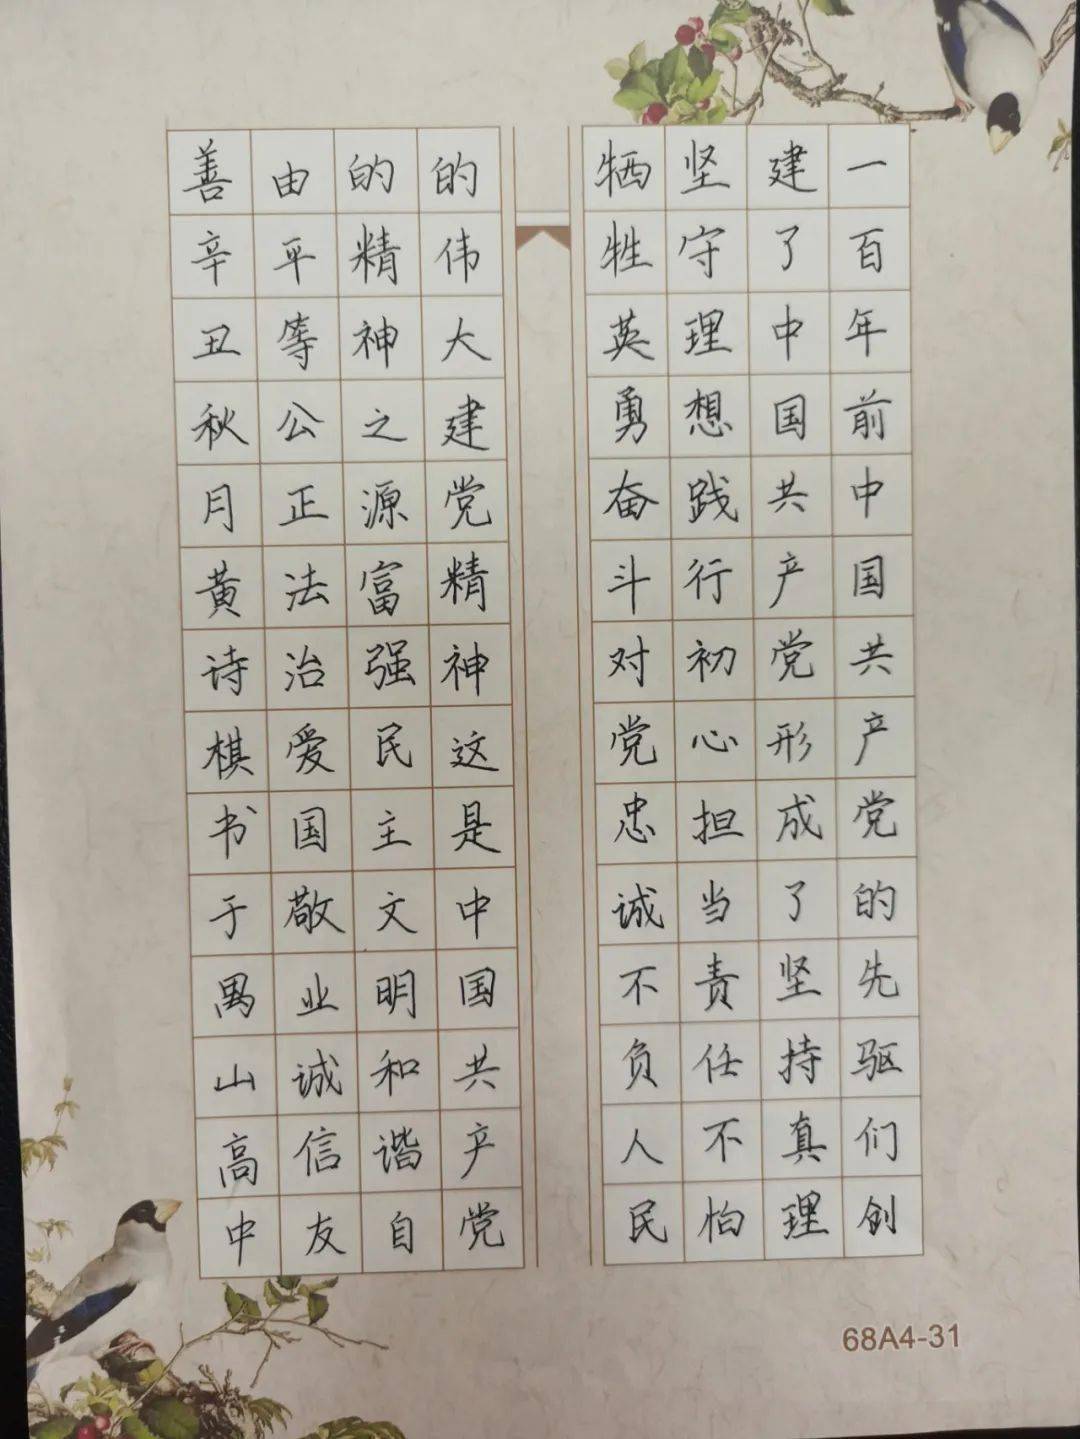 一百年前中国共产党的先驱们创
建了中国共产党形成了坚持真理
坚守理想践行初心担当责任不怕
牺牲英勇奋斗对党忠诚不负人民
的伟大建党精神这是中国共产党
的精神之源富强民主文明和谐自
由平等公正法治爱国敬业诚信友
善辛丑秋月黄诗棋书于禺山高中
68A4-31